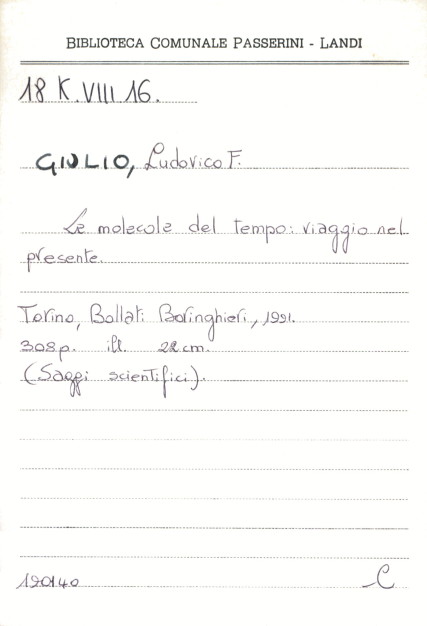 BIBLIOTECA COMUNALE PASSERINI - LANDI
18 K.VIII.16.
GIULIO, Ludovico F.
Le molecole del tempo: viaggio nel
presente.
Torino, Bollati Boringhieri, 1991.
308p. ill. 22cm.
(Saggi scientifici).
190140
C